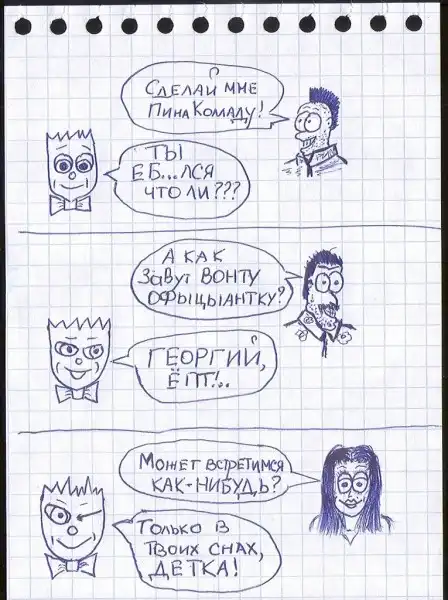 СДЕЛАЙ МНЕ
ПИНАКОЛАДУ!
ТЫ
ЕБ...ЛСЯ
ЧТО ЛИ???
А КАК
ЗАВУТ ВОНТУ
ОФЫЦЫАНТКУ?
ГЕОРГИЙ,
ЁПТ!..
МОЖЕТ ВСТРЕТИМСЯ
КАК-НИБУДЬ?
ТОЛЬКО В
ТВОИХ СНАХ,
ДЕТКА!